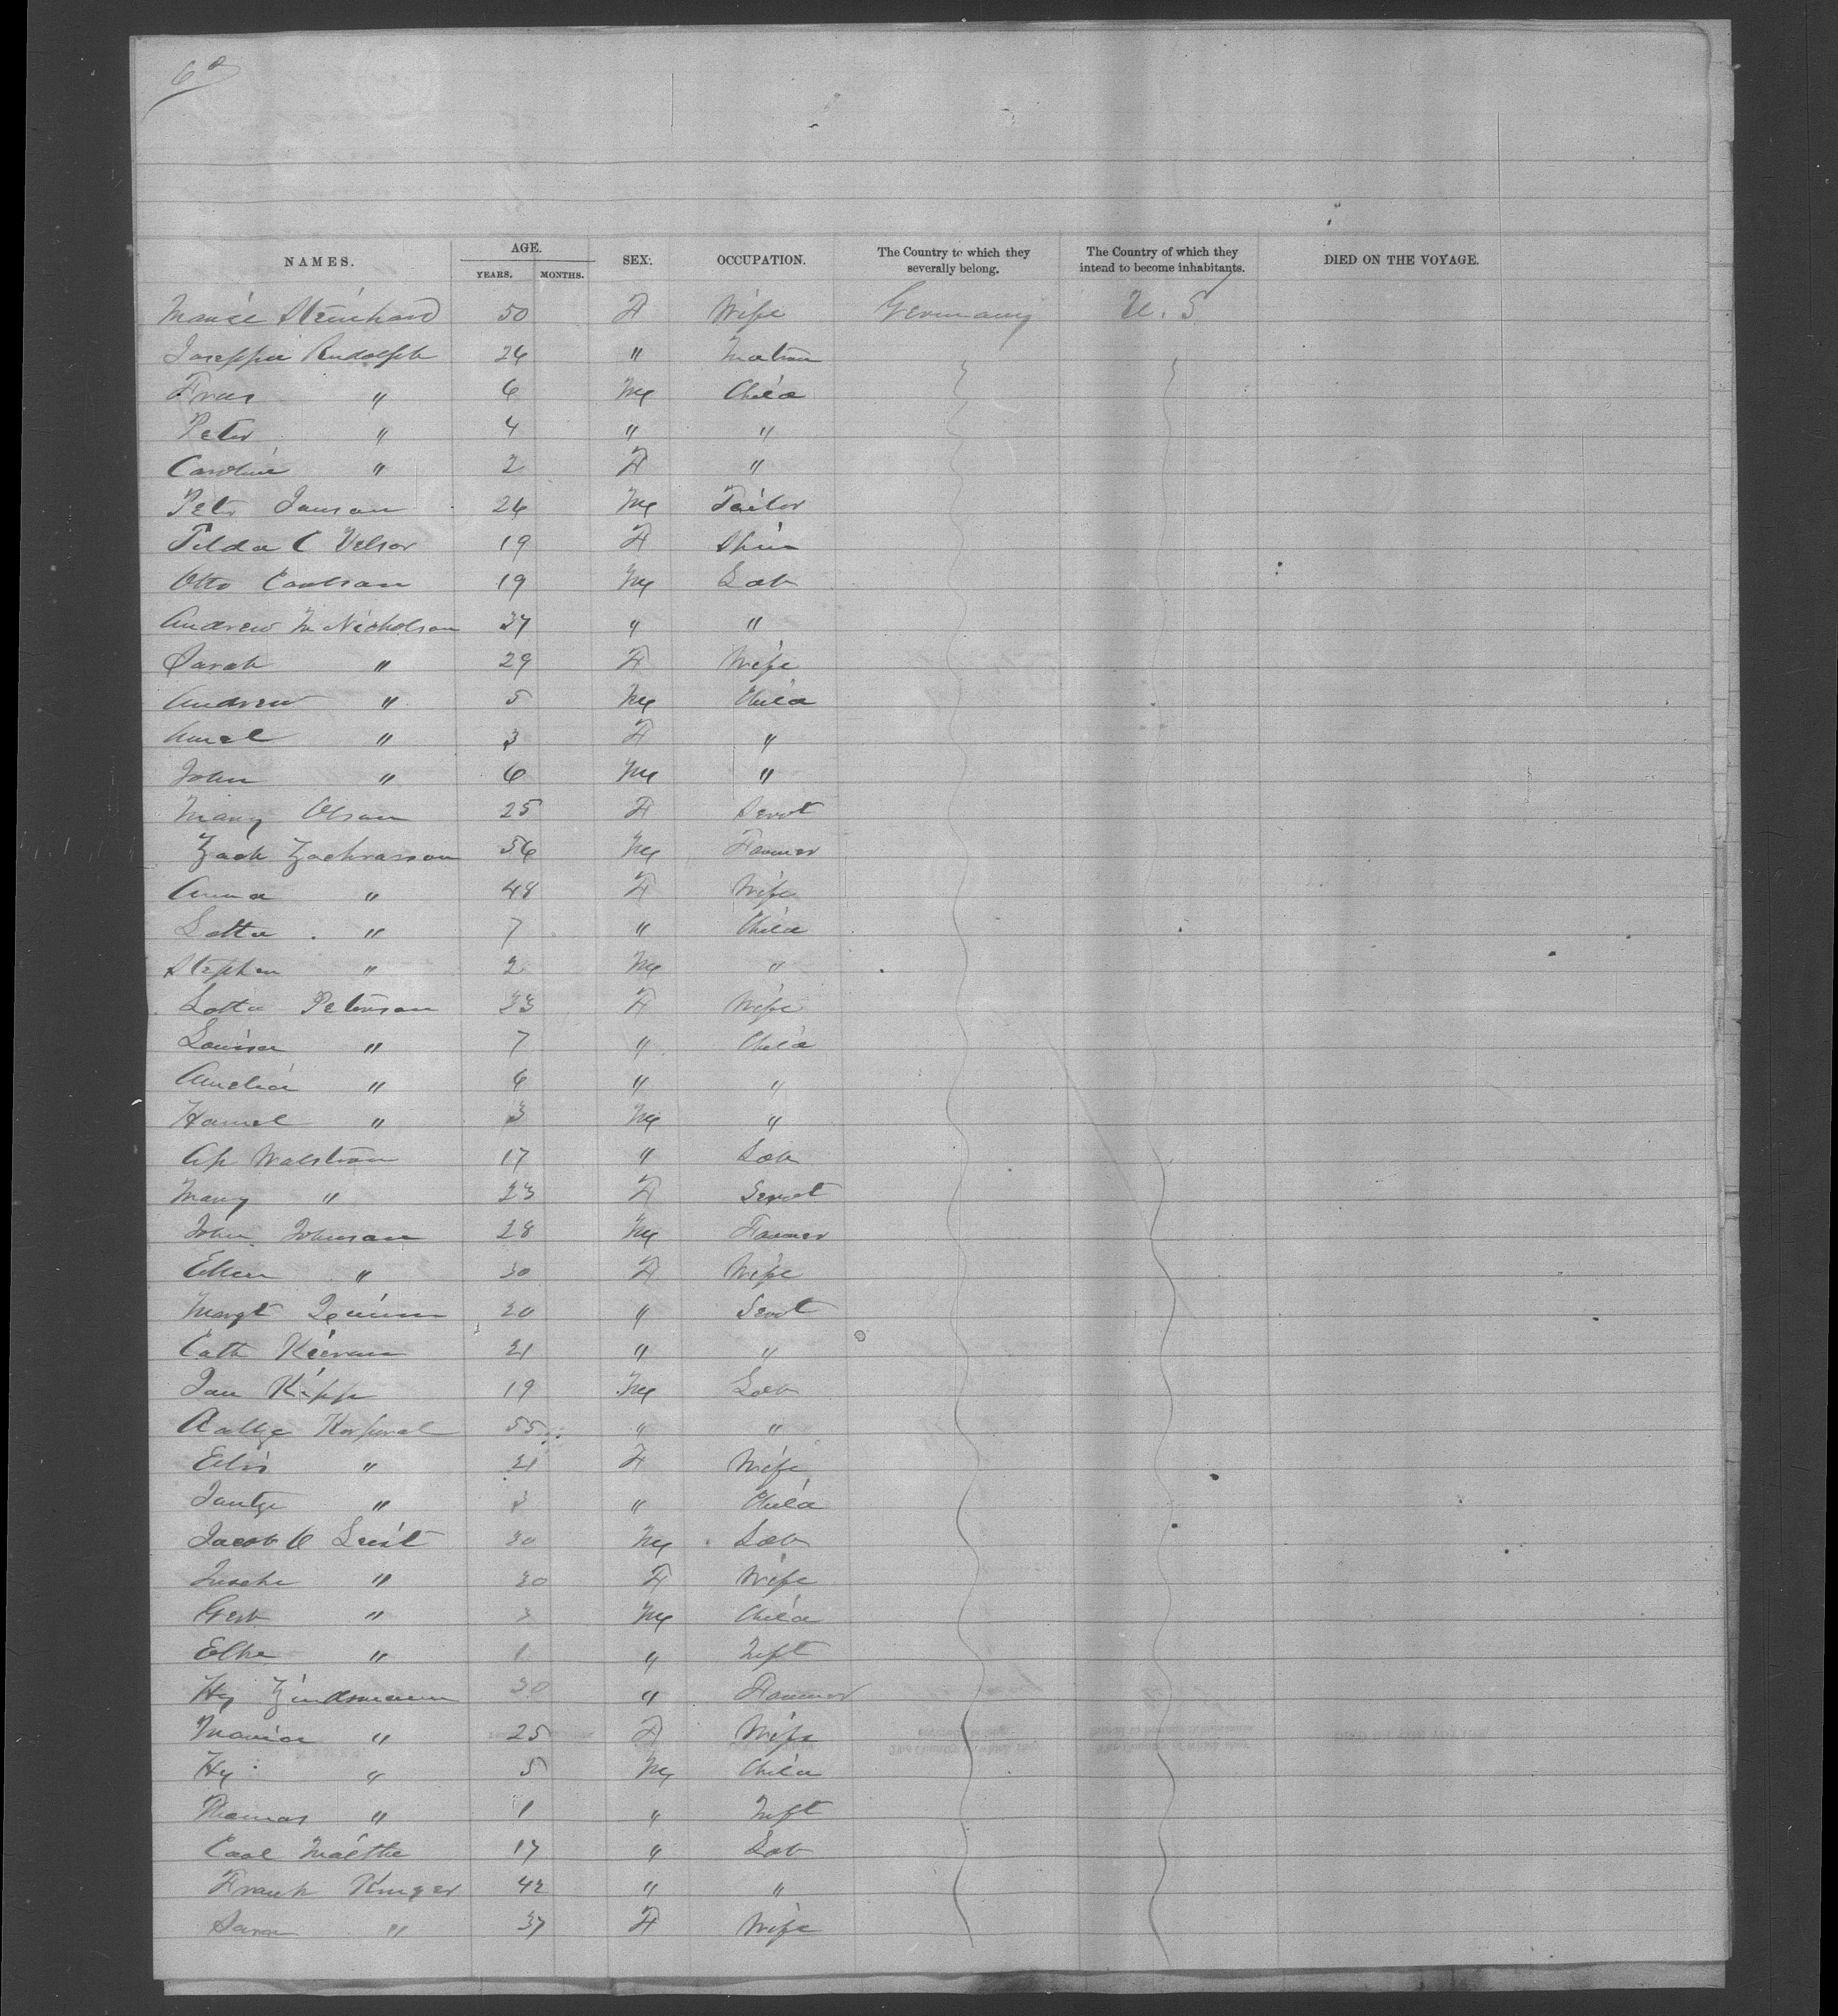 6
NAMES. AGE. YEARS. MONTHS. SEX. OCCUPATION. The Country to which they severally belong. The Country of which they intend to become inhabitants. DIED ON THE VOYAGE.
Marie Steinhard 50 F Wife Germany U.S
Josephie Rudolph 26 " Matron
Fras " 6 M Child
Peter " 4 " "
Caroline " 2 F "
Peter Janson 26 M Tailor
Tilda C Velsor 19 F Spin
Otto Carlson 19 M Lab
Andrew M Nicholson 37 " "
Sarah " 29 F Wife
Andrew " 5 M Child
Amel " 3 F "
John " 6 M "
Mary Olson 25 F Servt
Zach Zachrasson 56 M Farmer
Anna " 48 F Wife
Lotta " 7 " Child
Stephen " 2 M "
Lotta Peterson 33 F Wife
Louisa " 7 " Child
Amelia " 6 " "
Hamel " 3 M "
Ap Walstrom 17 " Lab
Mary " 23 F Servt
John Johnson 28 M Farmer
Ellen " 30 F Wife
Margt 20 " Servt
Cath Kiernan 21 " "
Jan Kipp 19 M Lab
Aaltje Korporal 55 " "
" 21 F Wife
Jantje " 3 " Child
Jacob Leist 30 M Lab
" 30 F Wife
Gert " 3 M Child
Elke " 1 " Inft
Hy Zindsmann 30 " Farmer
Maria " 25 F Wife
Hy " 5 M Child
Thomas " 1 " Inft
Carl Malthe 17 " Lab
Frank Kruger 42 " "
Sara " 37 F Wife